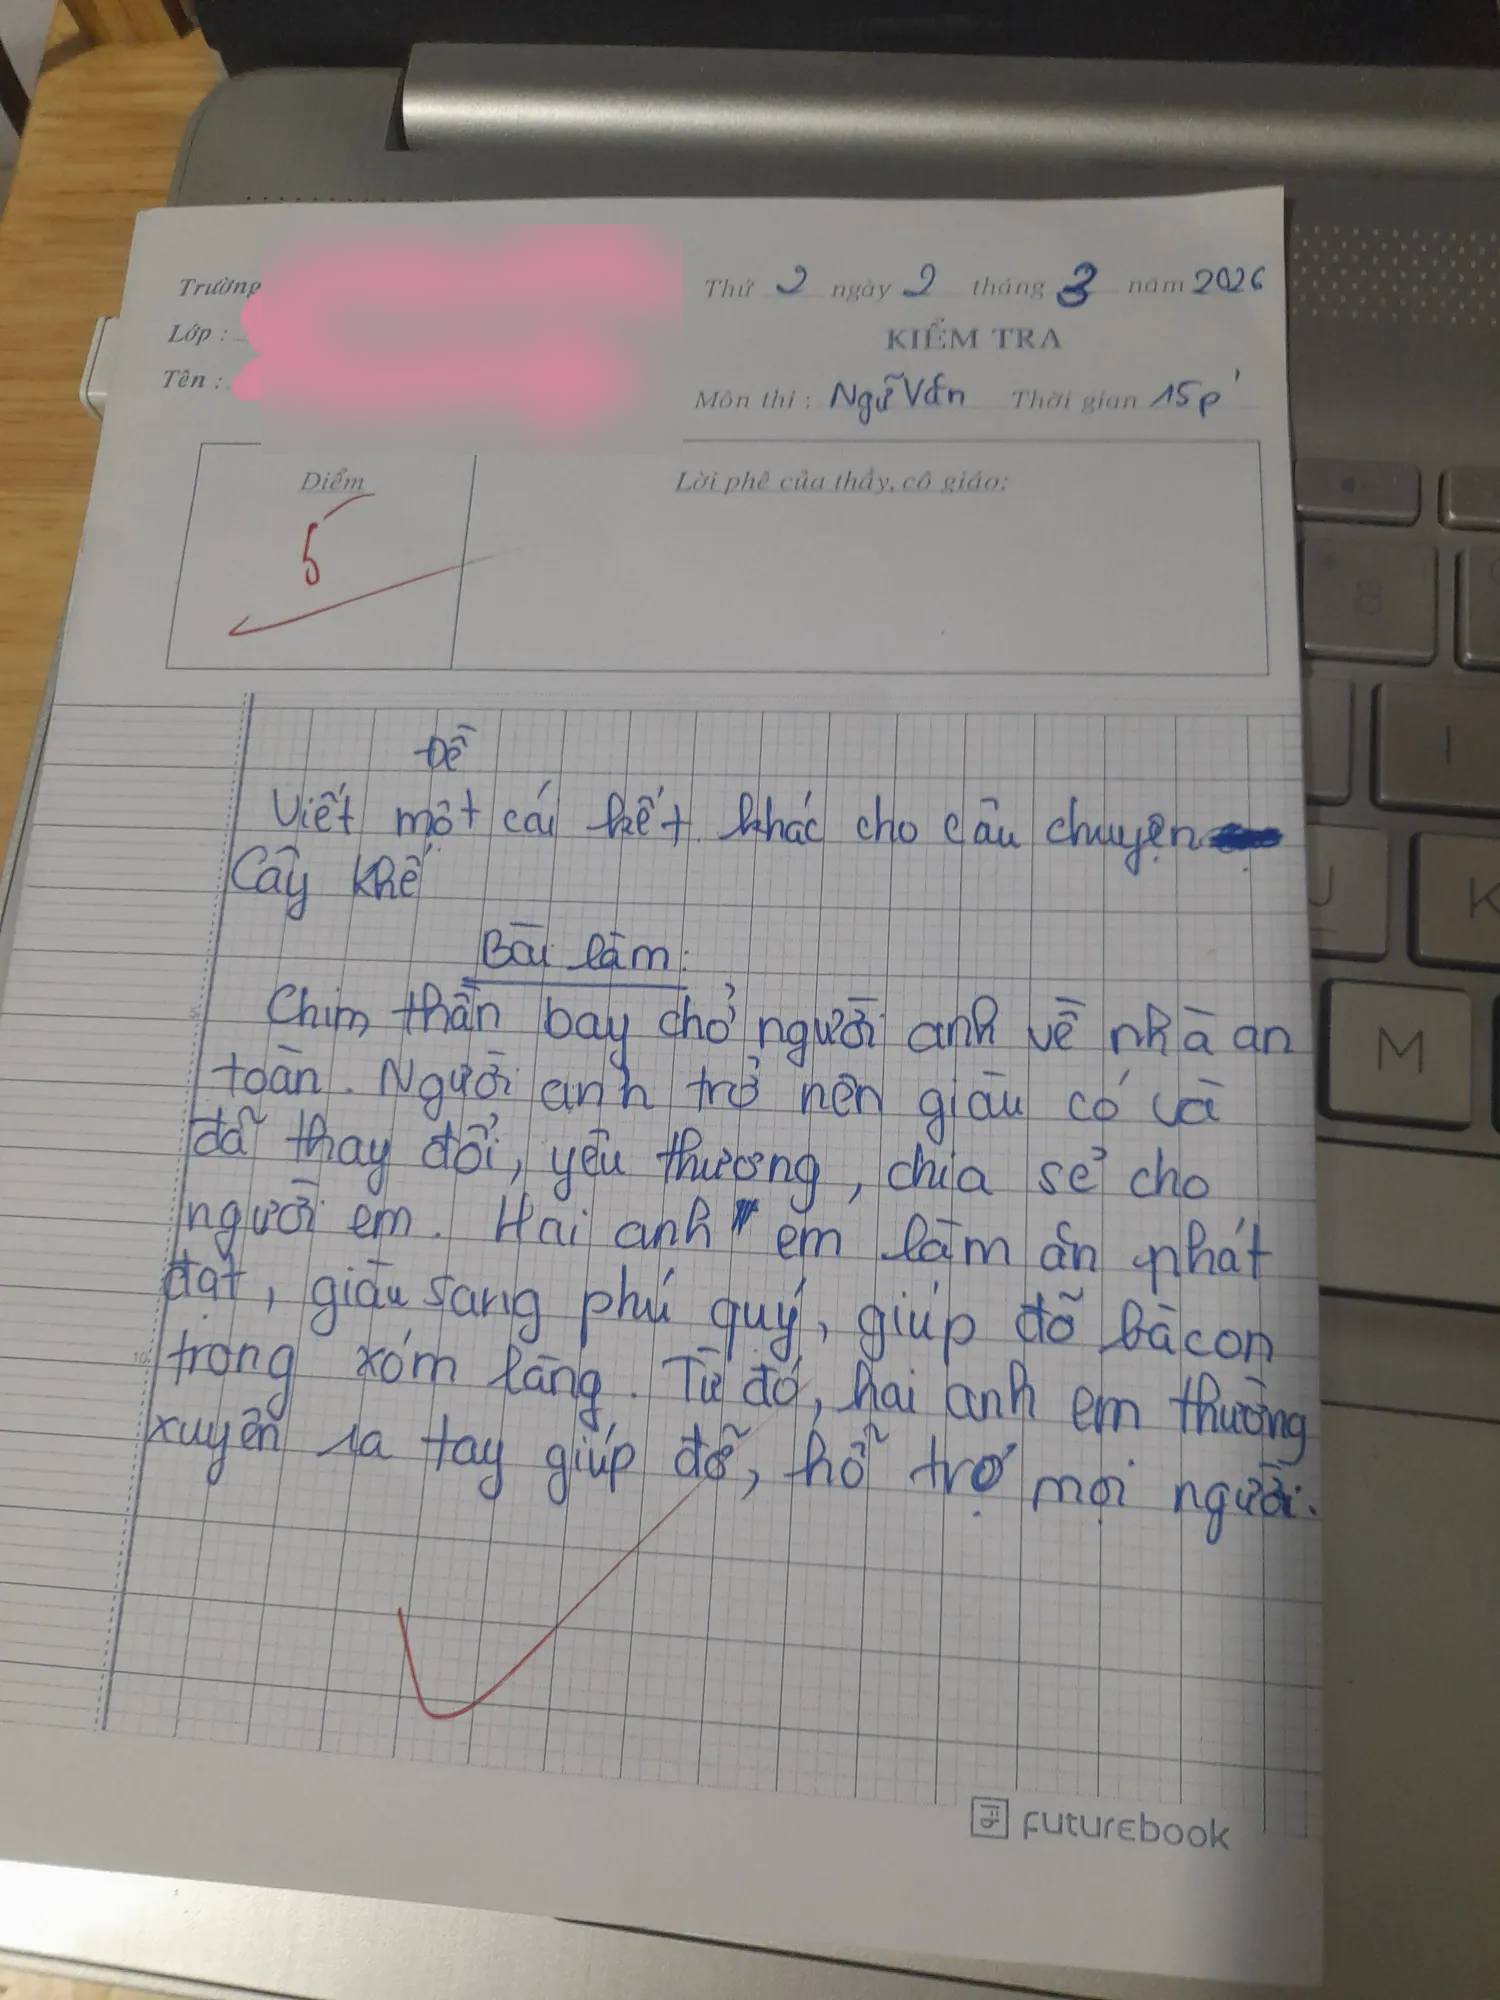 Trường
Thứ 2 ngày 2 tháng 3 năm 2026
Lớp :
KIỂM TRA
Tên :
Môn thi : Ngữ Văn Thời gian 15p'
Điểm
Lời phê của thầy, cô giáo:
5
Đề
Viết một cái kết khác cho câu chuyện
Cây khế
Bài làm:
Chim thần bay chở người anh về nhà an
toàn. Người anh trở nên giàu có và
đã thay đổi, yêu thương, chia sẻ cho
người em. Hai anh em làm ăn phát
đạt, giàu sang phú quý, giúp đỡ bà con
trong xóm làng. Từ đó, hai anh em thường
xuyên ra tay giúp đỡ, hỗ trợ mọi người.
FUTUREBOOK
8
I
U
K
M